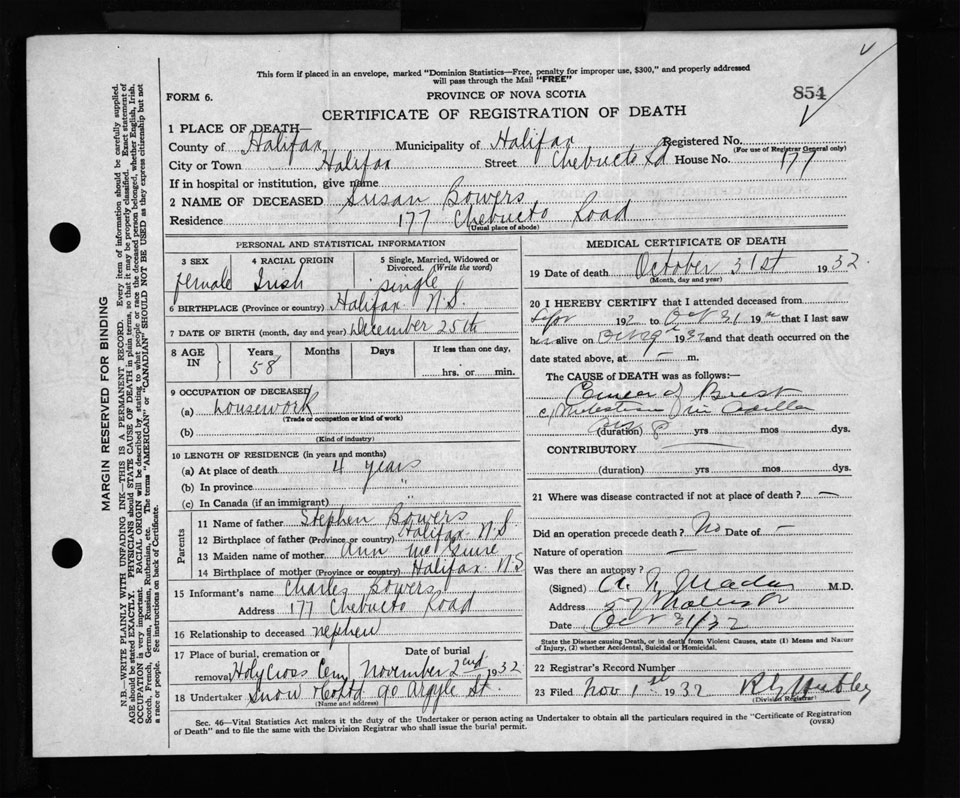 This form if placed in an envelope, marked "Dominion Statistics—Free, penalty for improper use, $300," and properly addressed
will pass through the Mail "FREE"
FORM 6.
PROVINCE OF NOVA SCOTIA
854
CERTIFICATE OF REGISTRATION OF DEATH
1 PLACE OF DEATH—
County of Halifax Municipality of Halifax Registered No.
(For use of Registrar General only)
City or Town Halifax Street Chebucto Rd House No. 177
If in hospital or institution, give name
2 NAME OF DECEASED Susan Bowers
Residence 177 Chebucto Road
(Usual place of abode)
PERSONAL AND STATISTICAL INFORMATION
3 SEX 4 RACIAL ORIGIN 5 Single, Married, Widowed or
Divorced. (Write the word)
female Irish single
6 BIRTHPLACE (Province or country) Halifax N.S.
7 DATE OF BIRTH (month, day and year) December 25th
8 AGE IN Years Months Days If less than one day,
58 hrs. or min.
9 OCCUPATION OF DECEASED
(a) housework
(Trade or occupation or kind of work)
(b)
(Kind of industry)
10 LENGTH OF RESIDENCE (in years and months)
(a) At place of death 4 years
(b) In province "
(c) In Canada (if an immigrant) "
Parents
11 Name of father Stephen Bowers
12 Birthplace of father (Province or country) Halifax N.S
13 Maiden name of mother Ann
14 Birthplace of mother (Province or country) Halifax N.S
15 Informant's name Charles Bowers
Address 177 Chebucto Road
16 Relationship to deceased nephew
17 Place of burial, cremation or removal Date of burial
Holy Cross Cem November 2nd 1932
18 Undertaker Snow & Co Ltd 90 Argyle St.
(Name and address)
MEDICAL CERTIFICATE OF DEATH
19 Date of death October 31st 1932
(Month, day and year)
20 I HEREBY CERTIFY that I attended deceased from
192 to Oct 31 19 that I last saw
her alive on 1932 and that death occurred on the
date stated above, at — m.
The CAUSE of DEATH was as follows:—
Cancer of Breast
in Axilla
(duration) yrs mos dys.
CONTRIBUTORY
(duration) yrs mos dys.
21 Where was disease contracted if not at place of death? —
Did an operation precede death? No Date of —
Nature of operation —
Was there an autopsy?
(Signed) M.D.
Address
Date Oct 31/32
State the Disease causing Death, or in death from Violent Causes, state (1) Means and Nature
of Injury, (2) whether Accidental, Suicidal or Homicidal.
22 Registrar's Record Number
23 Filed Nov 1st 1932
(Division Registrar)
Sec. 46—Vital Statistics Act makes it the duty of the Undertaker or person acting as Undertaker to obtain all the particulars required in the "Certificate of Registration
of Death" and to file the same with the Division Registrar who shall issue the burial permit.
(OVER)
MARGIN RESERVED FOR BINDING
N.B.—WRITE PLAINLY WITH UNFADING INK—THIS IS A PERMANENT RECORD. Every item of information should be carefully supplied.
AGE should be stated EXACTLY. PHYSICIANS should STATE CAUSE OF DEATH in plain terms, so that it may be properly classified. Exact statement of
OCCUPATION is very important. RACIAL ORIGIN will be described by stating to what people or race the deceased person belonged, whether English, Irish,
Scotch, French, German, Russian, Ruthenian, etc. The terms "AMERICAN" or "CANADIAN" SHOULD NOT BE USED as they express citizenship but not
a race or people. See instructions on back of Certificate.